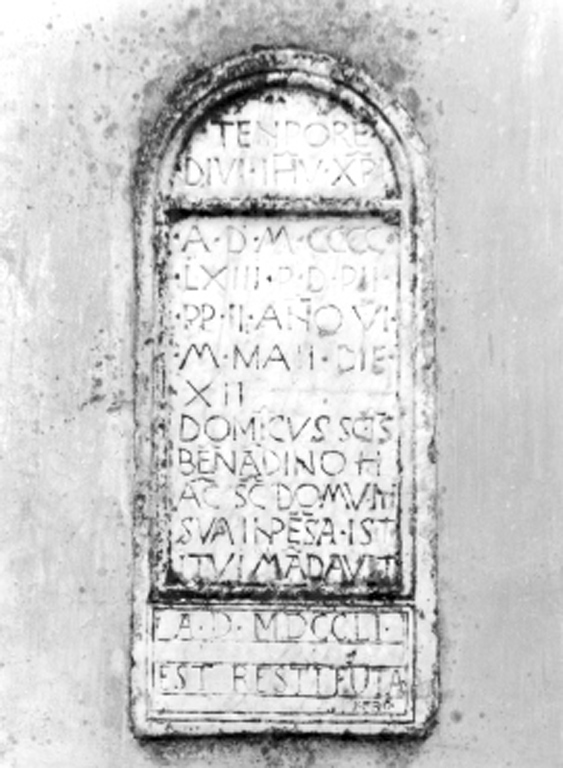 TENPORE
DIVI · IHV · XP̄I
· A · D · M · CCCC ·
· LXIII · P · D · PII ·
· PP · II · AÑO V̄I ·
· M · MAII · DIE ·
· X II
DOMĪCVS SC̄IS
BĒNĀDINO H
AC̄ SC̄ DOMVM
SVA INPĒSA · IST
ITVI MĀDAVIT
A · D · MDCCLI ·
EST RESTITUTA